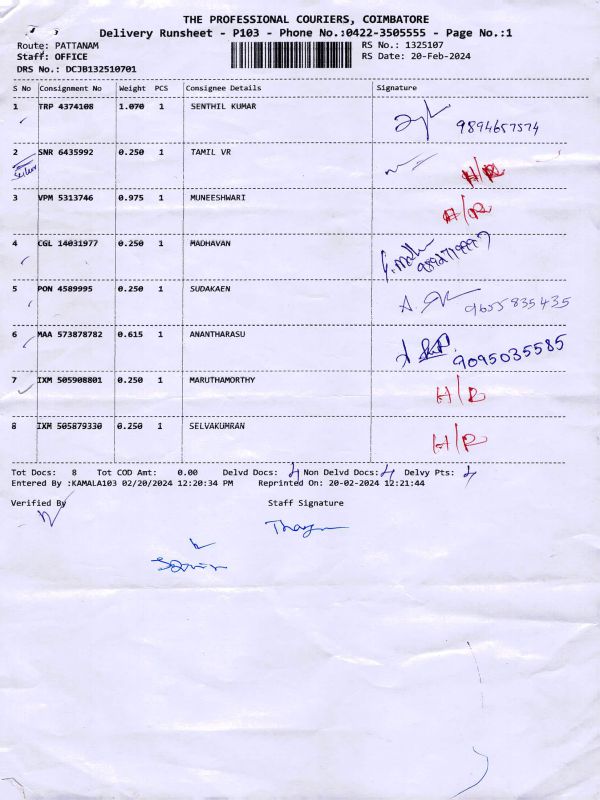 THE PROFESSIONAL COURIERS, COIMBATORE
Delivery Runsheet - P103 - Phone No.:0422-3505555 - Page No.:1
Route: PATTANAM RS No.: 1325107
Staff: OFFICE RS Date: 20-Feb-2024
DRS No.: DCJB132510701
S No Consignment No Weight PCS Consignee Details Signature
1 TRP 4374108 1.070 1 SENTHIL KUMAR
9894657574
2 SNR 6435992 0.250 1 TAMIL VR
H/R
3 VPM 5313746 0.975 1 MUNEESHWARI
H/R
4 CGL 14031977 0.250 1 MADHAVAN
5 PON 4589995 0.250 1 SUDAKAEN
9655835435
6 MAA 573878782 0.615 1 ANANTHARASU
9095035585
7 IXM 505908801 0.250 1 MARUTHAMORTHY
H/R
8 IXM 505879330 0.250 1 SELVAKUMRAN
H/R
Tot Docs: 8 Tot COD Amt: 0.00 Delvd Docs: 4 Non Delvd Docs: 4 Delvy Pts: 4
Entered By :KAMALA103 02/20/2024 12:20:34 PM Reprinted On: 20-02-2024 12:21:44
Verified By Staff Signature